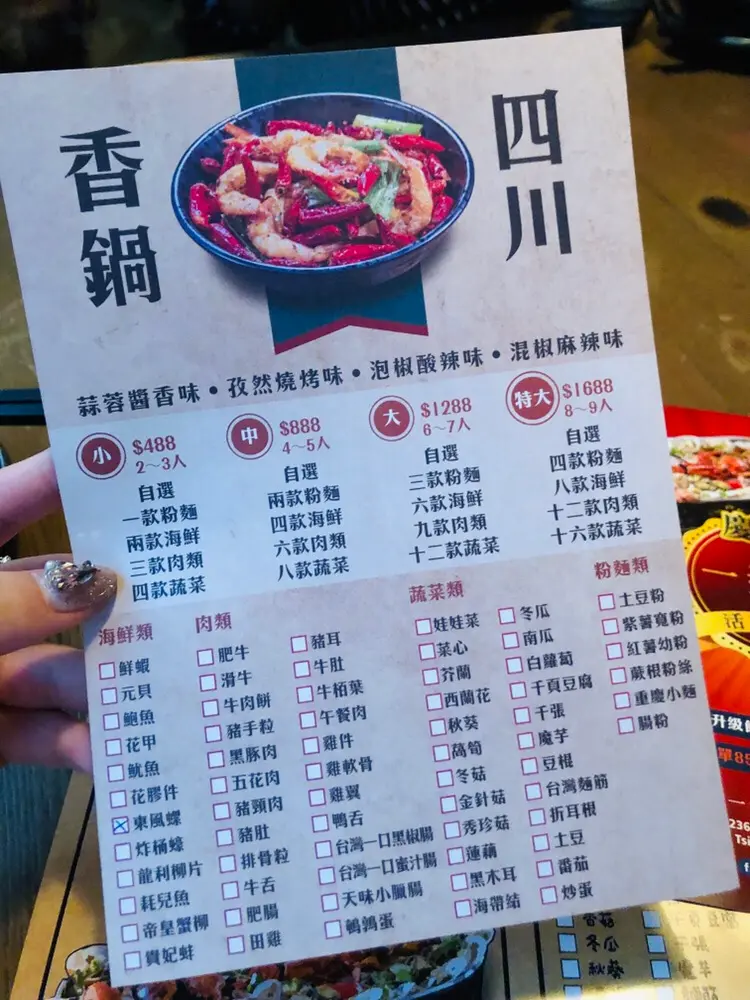 四川
香鍋
蒜蓉醬香味 • 孜然燒烤味 • 泡椒酸辣味 • 混椒麻辣味
小 $488
2～3人
自選
一款粉麵
兩款海鮮
三款肉類
四款蔬菜
中 $888
4～5人
自選
兩款粉麵
四款海鮮
六款肉類
八款蔬菜
大 $1288
6～7人
自選
三款粉麵
六款海鮮
九款肉類
十二款蔬菜
特大 $1688
8～9人
自選
四款粉麵
八款海鮮
十二款肉類
十六款蔬菜
海鮮類
鮮蝦
元貝
鮑魚
花甲
魷魚
花膠件
東風螺
炸桶蠔
龍利柳片
耗兒魚
帝皇蟹柳
貴妃蚌
肉類
肥牛
滑牛
牛肉餅
豬手粒
黑豚肉
五花肉
豬頸肉
豬肚
排骨粒
牛舌
肥腸
田雞
豬耳
牛肚
牛栢葉
午餐肉
雞件
雞軟骨
雞翼
鴨舌
台灣一口黑椒腸
台灣一口蜜汁腸
天味小臘腸
鵪鶉蛋
蔬菜類
娃娃菜
菜心
芥蘭
西蘭花
秋葵
萵筍
冬菇
金針菇
秀珍菇
蓮藕
黑木耳
海帶結
冬瓜
南瓜
白蘿蔔
千頁豆腐
千張
魔芋
豆棍
台灣麵筋
折耳根
土豆
番茄
炒蛋
粉麵類
土豆粉
紫薯寬粉
紅薯幼粉
蕨根粉絲
重慶小麵
腸粉
一
活
升級
單85
236
Tsi
冬瓜
秋葵